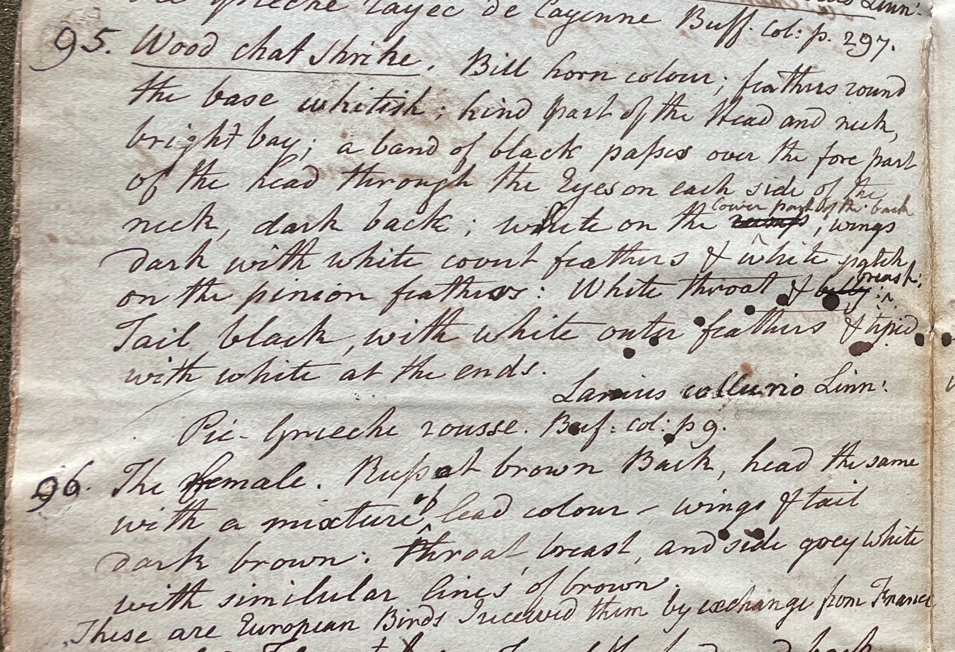 Grieche rayée de Cayenne Buff. Col: p. 297. Linn:
95. Wood chat Shrike. Bill horn colour; feathers round
the base whitish; hind part of the Head and neck,
bright bay; a band of black passes over the fore part
of the head through the Eyes on each side of the
neck, dark back; white on the rump lower part of the back; wings
dark with white covert feathers & white patch
on the pinion feathers: White throat & belly breast;
Tail black, with white outer feathers & tipid
with white at the ends.
Lanius collurio Linn:
Pie-Grieche rousse. Buf: col: p 9.
96. The female. Rufset brown Back, head the same
with a mixture of lead colour – wings & tail
dark brown: throat, breast, and side grey white
with similular lines of brown.
These are European Birds I received them by exchange from France